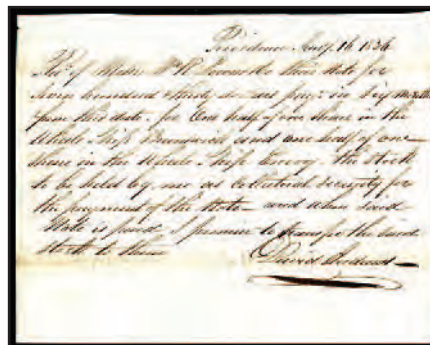 Providence Aug. 16. 1836
Rec'd of Messrs Wm R. their note for
seven hundred & thirty dollars pay: in six months
from this date, for One half of one share in the
Whale Ship and one half of one
share in the Whale Ship Envoy. the stock
to be held by me as Collateral security for
the payment of the Note and when said
Note is paid I promise to transfer the said
stock to them
David